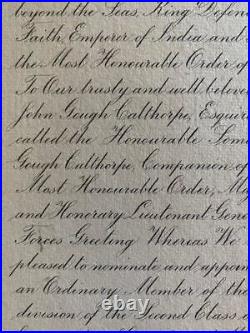 beyond the Seas, King Defen
Faith, Emperor of India and
the Most Honourable Order of
To Our trusty and well belove
John Gough Calthorpe, Esquire
called the Honourable Som
Gough Calthorpe, Companion of
Most Honourable Order, Maj
and Honorary Lieutenant Gene
Forces Greeting Whereas We
pleased to nominate and appoin
an Ordinary Member of the
division of the Second Class o